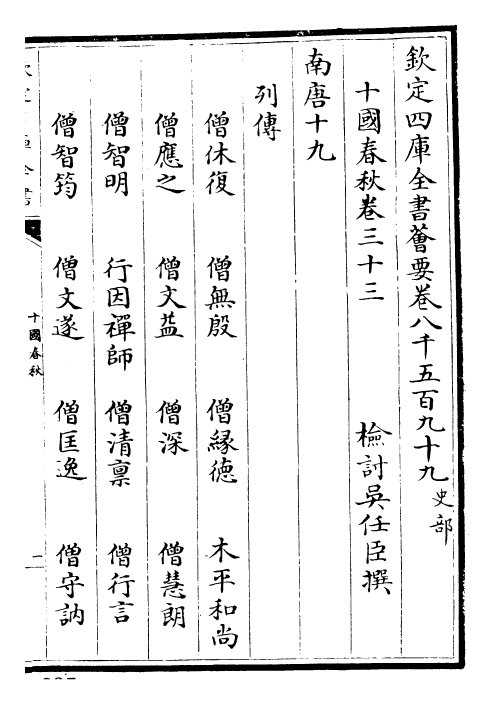 欽定四庫全書薈要卷八千五百九十九史部
十國春秋卷三十三 檢討吳任臣撰
南唐十九
列傳
僧休復 僧無殷 僧緣德 木平和尚
僧應之 僧文益 僧深 僧慧朗
僧智明 行因禪師 僧清稟 僧行言
僧智筠 僧文遂 僧匡逸 僧守訥
十國春秋